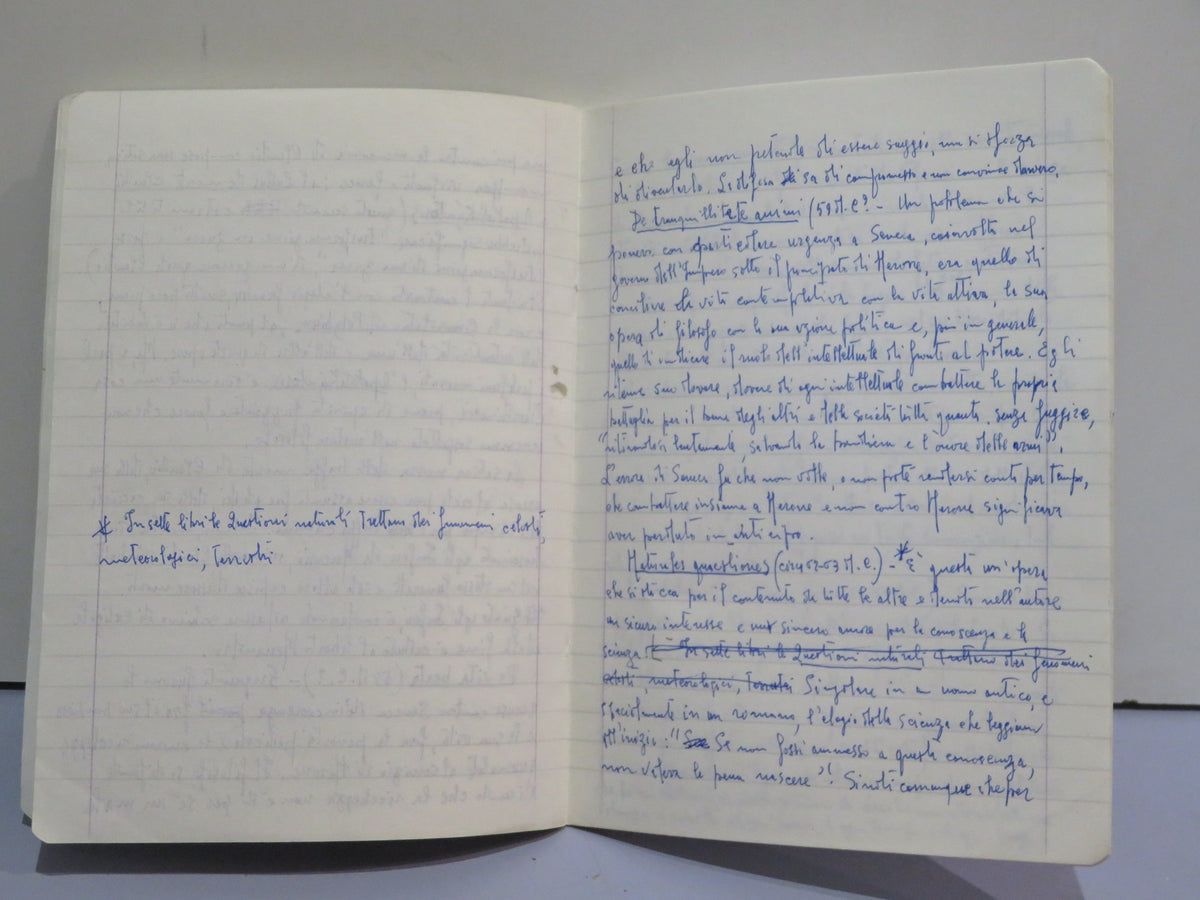 * In sette libri le Questioni naturali trattano dei fenomeni celesti,
meteorologici, terrestri
e che egli non pretende di essere saggio, ma si sforza
di diventarlo. La difesa sa di compromesso e non convince davvero.
De tranquillitate animi (59 d.C? - Un problema che si
poneva con particolare urgenza a Seneca, coinvolto nel
governo dell'Impero sotto il principato di Nerone, era quello di
conciliare la vita contemplativa con la vita attiva, la sua
opera di filosofo con la sua azione politica e, più in generale,
quello di indicare il ruolo dell'intellettuale di fronte al potere. Egli
ritenne suo dovere, dovere di ogni intellettuale combattere la propria
battaglia per il bene degli altri e della società tutta quanta, senza fuggire,
"ritirandosi lentamente, salvando la bandiera e l'onore delle armi".
L'errore di Seneca fu che non volle, e non poté rendersi conto per tempo,
che combattere insieme a Nerone e non contro Nerone significava
aver perduto in anticipo.
Naturales quaestiones (circa 62-63 d.C.) - * È questa un'opera
che si stacca per il contenuto da tutte le altre e denota nell'autore
un sicuro interesse e un sincero amore per la conoscenza e la
scienza. In sette libri le Questioni naturali trattano dei fenomeni
celesti, meteorologici, terrestri Singolare in un uomo antico, e
specialmente in un romano, l'elogio della scienza che leggiamo
all'inizio: "Se Se non fossi ammesso a questa conoscenza,
non valeva la pena nascere"! Si noti comunque che per